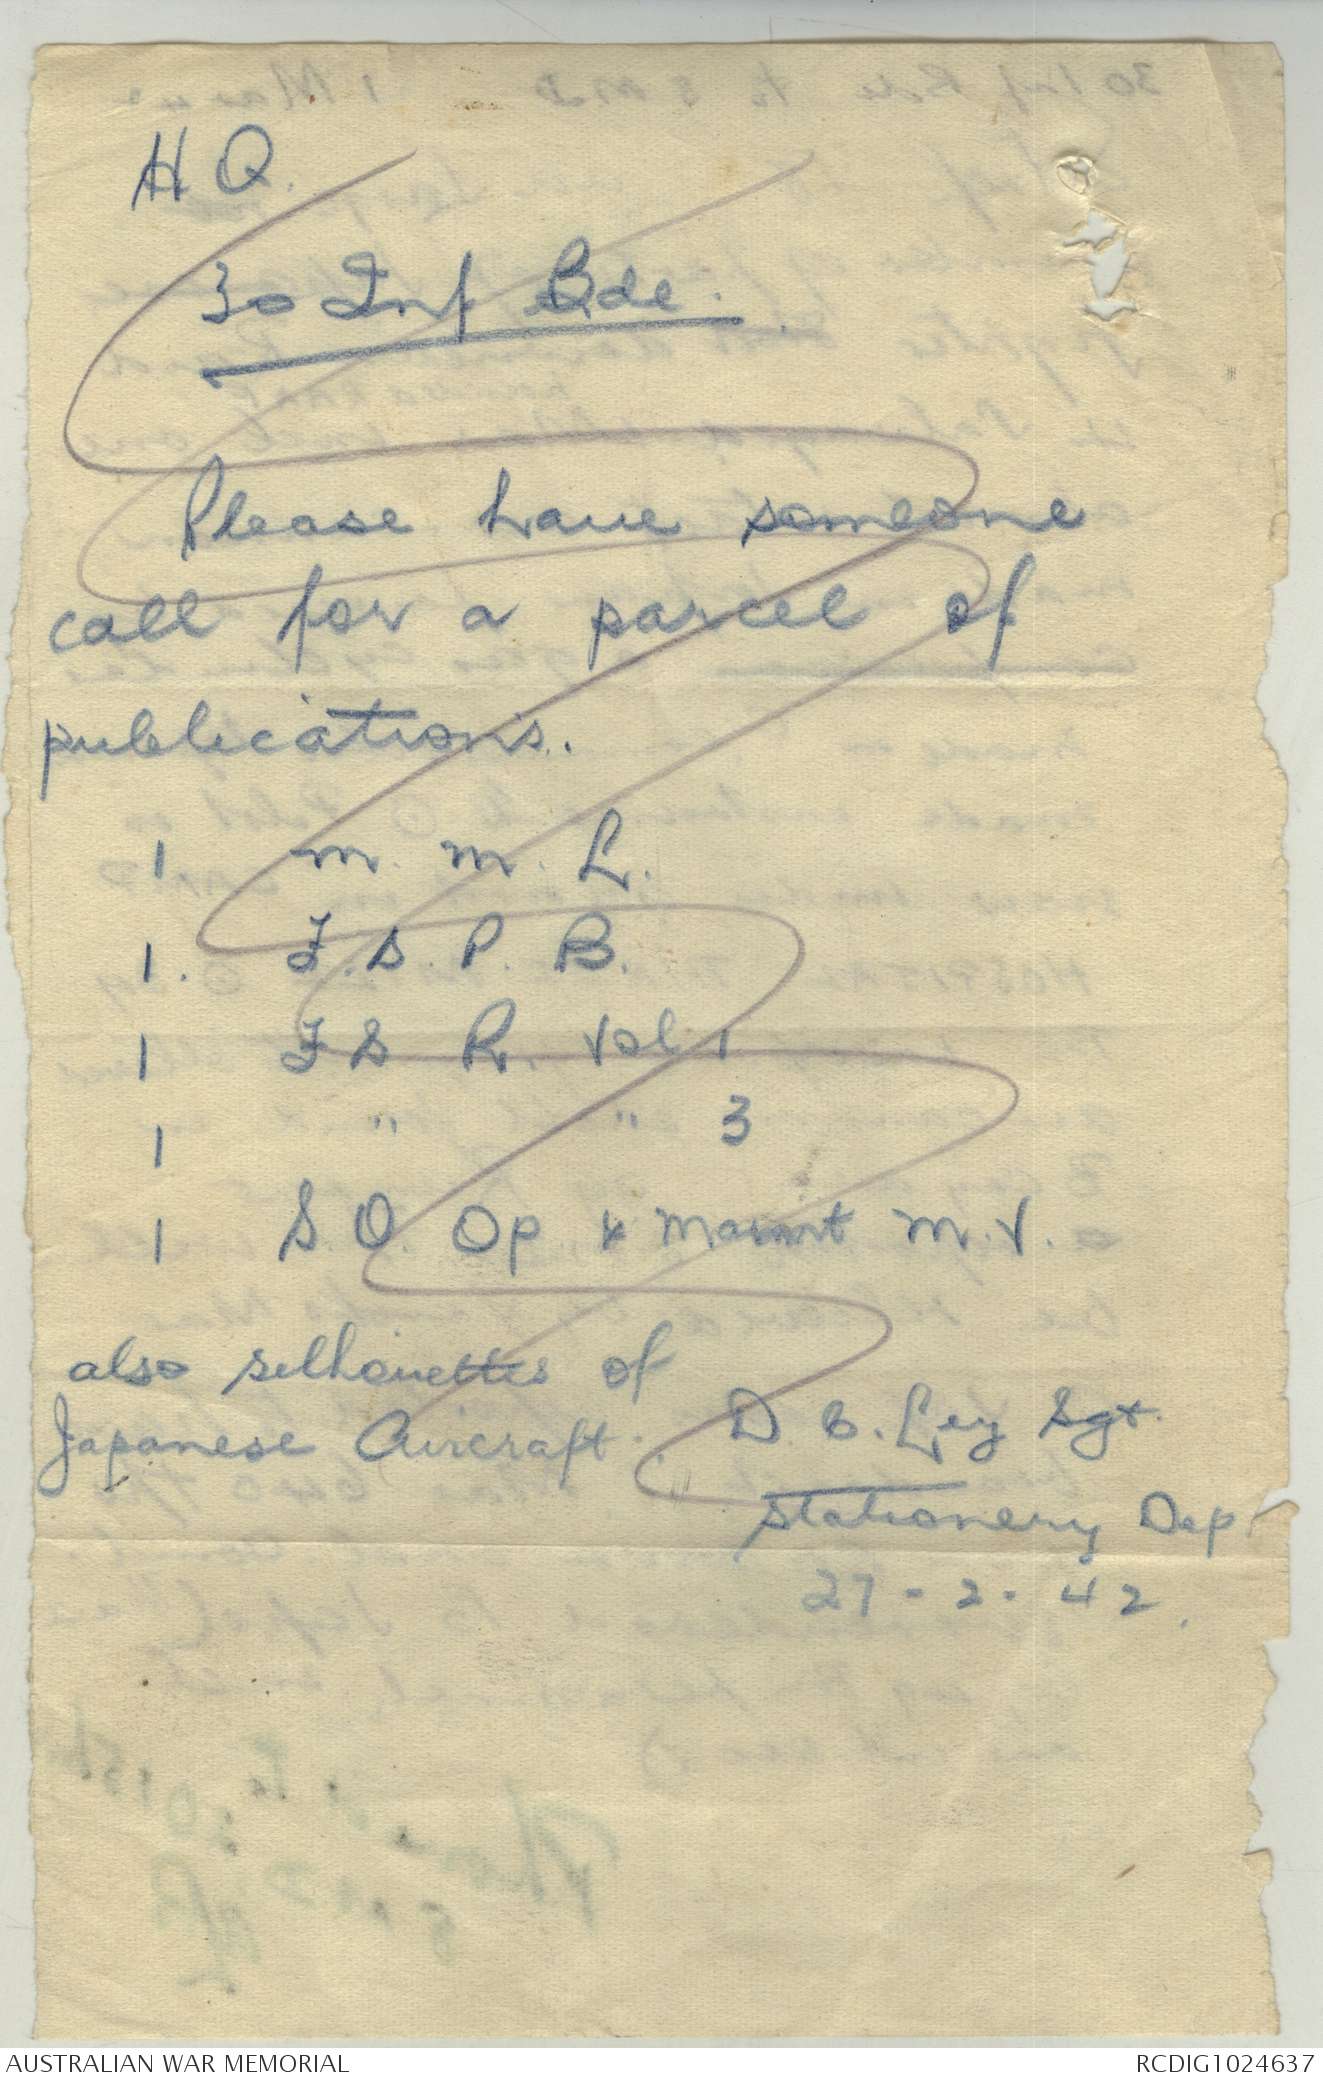 H Q.
30 Inf Bde.
Please have someone
call for a parcel of
publications.
1 M. M. L.
1. F. S. P. B.
1 F S R. Vol 1
1 " " 3
1 S. O. Op & Maint M. V.
also silhouettes of
Japanese Aircraft.
D. B. Ley Sgt.
Stationery Dept
27-2-42.
AUSTRALIAN WAR MEMORIAL
RCDIG1024637